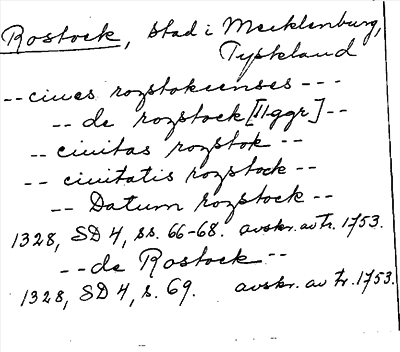 Rostock, stad i Mecklenburg,
Tyskland
-- ciues rozstokcenses ---
-- de rozstock [11 ggr] --
-- ciuitas rozstok --
-- ciuitatis rozstock --
-- Datum rozstock --
1328, SD 4, ss. 66-68. avskr. av tr. 1753.
-- de Rostock --
1328, SD 4, s. 69. avskr. av tr. 1753.